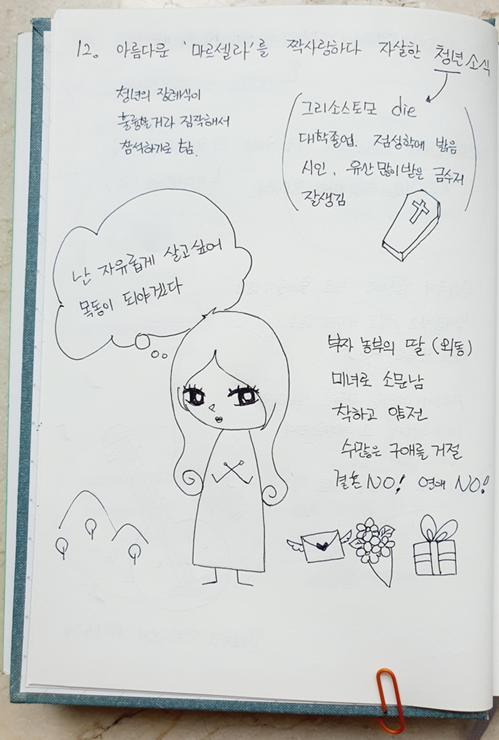 12. 아름다운 '마르셀라'를 짝사랑하다 자살한 청년소식
청년의 장례식이
훌륭할거라 짐작해서
참석하기로 함.
그리소스토모 die
대학졸업. 점성학에 밝음
시인, 유산 많이받은 금수저
잘생김
난 자유롭게 살고싶어
목동이 되야겠다
부자 농부의 딸 (외동)
미녀로 소문남
착하고 얌전
수많은 구애를 거절
결혼 NO! 연애 NO!